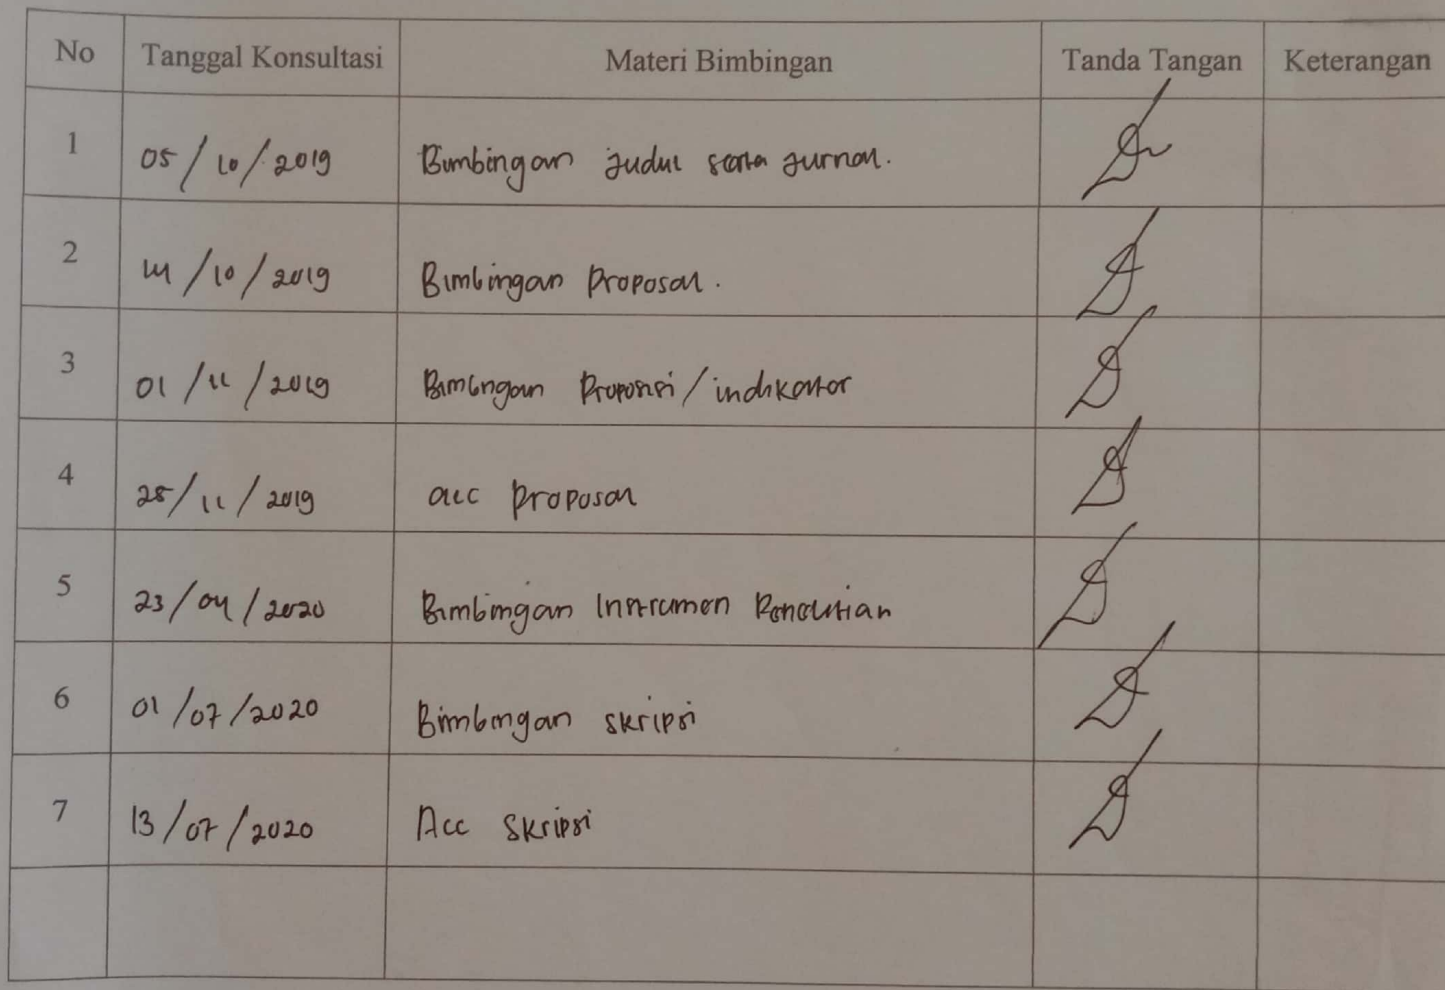 No Tanggal Konsultasi Materi Bimbingan Tanda Tangan Keterangan
1 05/10/2019 Bimbingan judul serta jurnal.
2 /10/2019 Bimbingan Proposal.
3 01/11/2019 Bimbingan Proposisi/indikator
4 25/11/2019 acc proposal
5 23/04/2020 Bimbingan Instrumen Penelitian
6 01/07/2020 Bimbingan skripsi
7 13/07/2020 Acc Skripsi